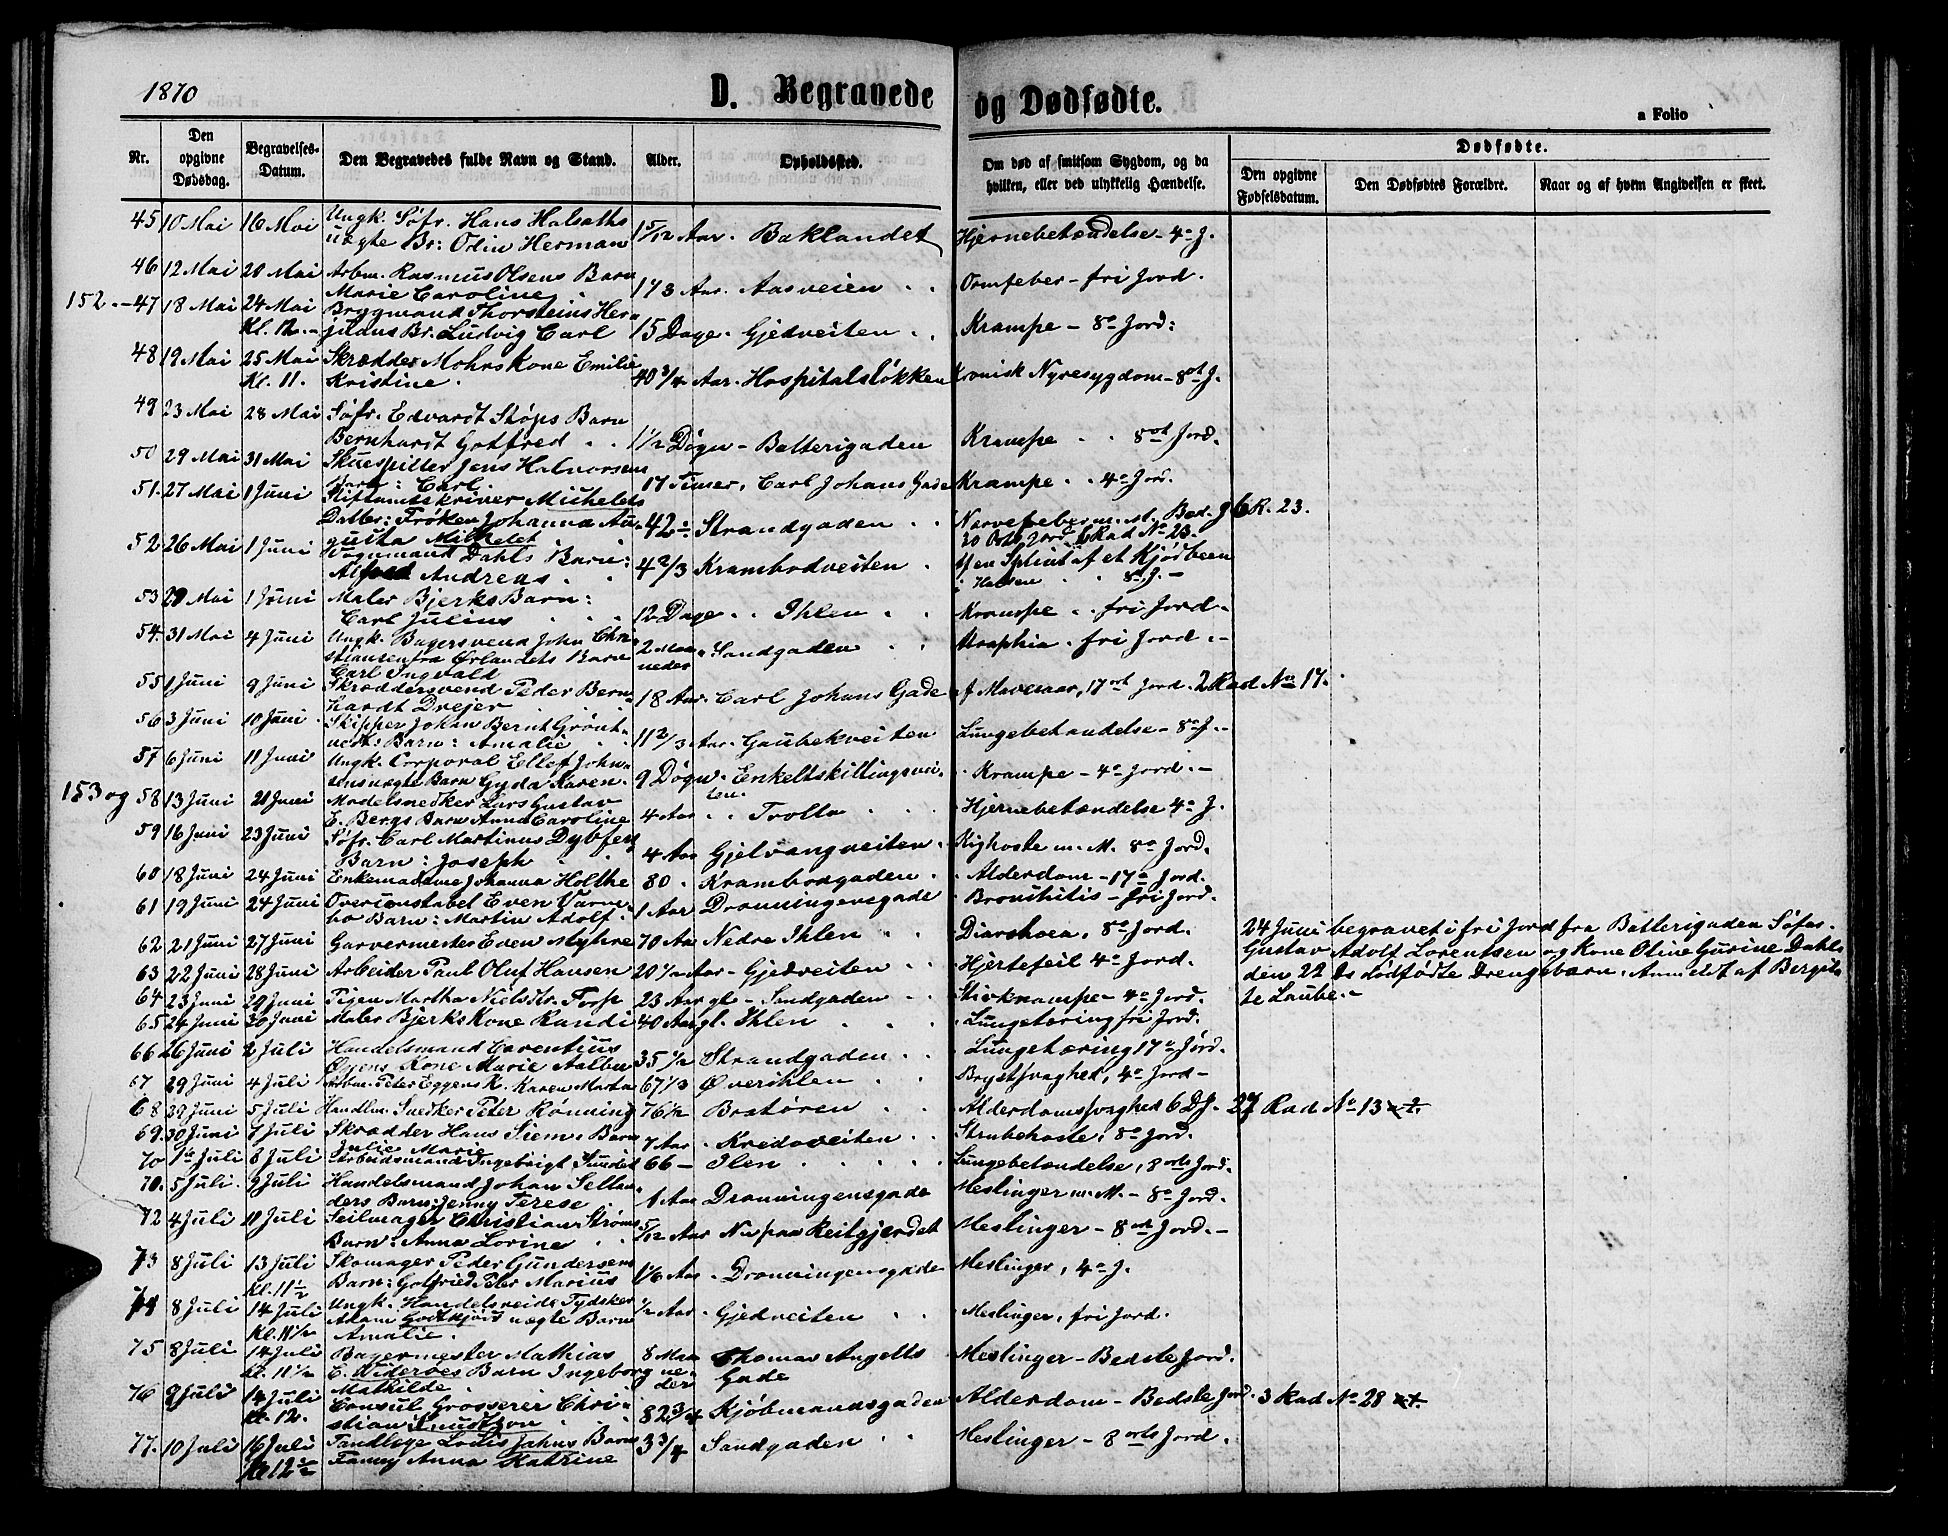 1870
D. Begravede og Dødfødte.
a Folio
Nr.
Den opgivne Dødsdag.
Begravelses-Datum.
Den Begravedes fulde Navn og Stand.
Alder.
Opholdssted.
Om død af smitsom Sygdom, og da hvilken, eller ved ulykkelig Hændelse.
Dødfødte.
Den opgivne Fødselsdatum.
Den Dødfødtes Forældre.
Naar og af hvem Angivelsen er skeet.
45 10 Mai 16 Mai Ungk. Søfr. Hans Halsaths 1 5/12 Aar. Baklandet Hjernebetændelse - 4de J.
uægte Br: Odin Herman
46 12 Mai 20 Mai Arbm. Rasmus Olsens Barn 1 7/3 Aar. Aasveien Ormfeber - fri Jord.
Marie Caroline
152. - 47 18 Mai 24 Mai Brygmand Thorsteins Her-
Kl. 12. julans Br. Ludvig Carl 15 Dage. Gjedveiten Krampe - 8de Jord:
48 19 Mai 25 Mai Skrædder Mohns Kone Emilie
Kl. 11. Kristine. 40 3/4 Aar. Hospitalsløkken Kronisk Nyresygdom - 8ot J.
49 23 Mai 28 Mai Søfr. Edvardt Støps Barn
Bernhardt Gotfred 1 1/2 Døgn - Batterigaden Krampe 8ot Jord.
50 29 Mai 31 Mai Skuespiller Jens Halvorsens
Barn: Carl. 17 Timer, Carl Johans Gade Krampe 4de Jord.
51. 27 Mai 1 Juni Stiftamtskriver Michelets
Datter: Frøken Johanna Au- 42 - Strandgaden Nervefeber m. st. Bed. J 6 R. 23.
gusta Michelet 20 Orts Jord 6 Rad No 23.
52 26 Mai 1 Juni Vognmand Dahls Barn: 4 2/3 Krambodveiten af en Splint af et Kjødbeen
Alfred Andreas i Halsen 8de J. -
53 29 Mai 1 Juni Maler Bjerks Barn:
Carl Julius 12 Dage Ihlen Krampe fri Jord.
54. 31 Mai 4 Juni Ungk. Bagersvend John Chri- 2 Maa- Sandgaden Atrophia. fri Jord. -
stiansen fra Ørlandets Barn neder
Carl Ingvald
55 1 Juni 9 Juni Skræddersvend Peder Bern- 18 Aar. Carl Johans Gade af Mavesaar, 17 ort Jord. 2 Rad No 17.
hardt Drejer
56 3 Juni 10 Juni Skipper Johan Bernt Grønt-
vedts Barn: Amalie 11 2/3 Aar. Gaubekveiten Lungebetændelse - 8de J. -
57 6 Juni 11 Juni Ungk. Corporal Ellef John-
sens uægte Barn Gyda Karen. 9 Døgn. Enkeltskillingsvei- Krampe - 4de Jord. -
ten.
153 og 58 13 Juni 21 Juni Modelsnedker Lars Gustav
E. Bergs Barn Anna Caroline 4 Aar Trolla Hjernebetændelse 4de J.
59 16 Juni 23 Juni Søfr. Carl Martinus Dybfers
Barn: Joseph 4 Aar Gjelvangveiten Kighoste m. M. 8de Jord.
60 18 Juni 24 Juni Enkemadame Johanna Holthe 80. Krambodgaden Alderdom - 17de Jord.
61 19 Juni 24 Juni Overconstabel Even Varne- 1 Aar Dronningensgade Bronchitis - fri Jord.
bo Barn: Martin Adolf.
62 21 Juni 27 Juni Garvermester Even Myhre 70 Aar Nedre Ihlen Diarrhoea, 8de Jord.
24 Juni begravet i fri Jord fra Batterigaden Søfar.
Gustav Adolf Lorentsen og Kone Oline Gurine Dahls
den 22 Ds dødfødte Drengebarn. Anm 22 7 af Bergit-
te Laube. -
63 22 Juni 28 Juni Arbeider Paul Oluf Hansen 20 1/2 Aar - Gjedveiten Hjertefeil 4de Jord.
64 23 Juni 29 Juni Pigen Martha Nielsdtr. Torp 23 Aar gl - Sandgaden Stivkrampe - 4de Jord.
65 24 Juni 30 Juni Maler Bjerks Kone Randi 40 Aar gl. Ihlen Lungetæring fri Jord.
66 26 Juni 2 Juli Handelsmand Carentius 35 1/2 Strandgaden Lungetæring 17de Jord.
Øyens Kone Marie Aalbu
67 29 Juni 4 Juli Arbm. Peter Eggens K. Karen Marta 67 1/3 Øverihlen Brystsvaghed, 4de Jord -
68 29 Juni 5 Juli Handlm. Snedker Peter Rønning 76 1/2 Bratøren Alderdomssvaghed 6 D J. 27 Rad No 13
69. 30 Juni 7 Juli Skrædder Hans Siems Barn 7 Aar. Kredoveiten Strubehoste, 8de Jord.
Julie Marie
70 1ste Juli 8 Juli Arbeidsmand Ingebrigt Sundet 66 - Ilen Lungebetændelse, 8 orts Jord.
70. 5 Juli 9 Juli Handelsmand Johan Sellan-
ders Barn: Jenny Terese 1 Aar Dronningensgade Meslinger m. M. - 8de Jord.
72 4 Juli 11 Juli Seilmager Christian Strøms 5/12 Aar Nu paa Reitgjerdet Meslinger - 8 ort Jord. -
Barn: Anna Lovine
73 8 Juli 13 Juli Skomager Peder Gundersens
Kl. 11 1/2 Barn: Gotfried Peter Marius 1 1/6 Aar Dronningensgade Meslinger, 4de J.
74 8 Juli 14 Juli Ungk. Handelsreide Tydsker 1/2 Aar. Gjedveiten Meslinger, fri Jord.
Kl. 11 1/2 Adam Godtkjørs uægte Barn
Amalie.
75 8 Juli 14 Juli Bagermester Mathias 8 Maa- Thomas Angells Meslinger - Bedste Jord.
Kl. 11 1/2 E. Widerøes Barn Ingeborg neder Gade
Mathilde
76 9 Juli 14 Juli Consul Grosserer Chri- 82 3/4 Kjøbmandsgaden Alderdom - Bedste Jord. 3 Rad No 28
Kl. 12. stian Knudtzon
77. 10 Juli 16 Juli Tandlæge Lodis Jahns Barn 3 3/4 Sandgaden Meslinger - 8 orts Jord.
Kl 12 1/2 Fanny Anna Katrine